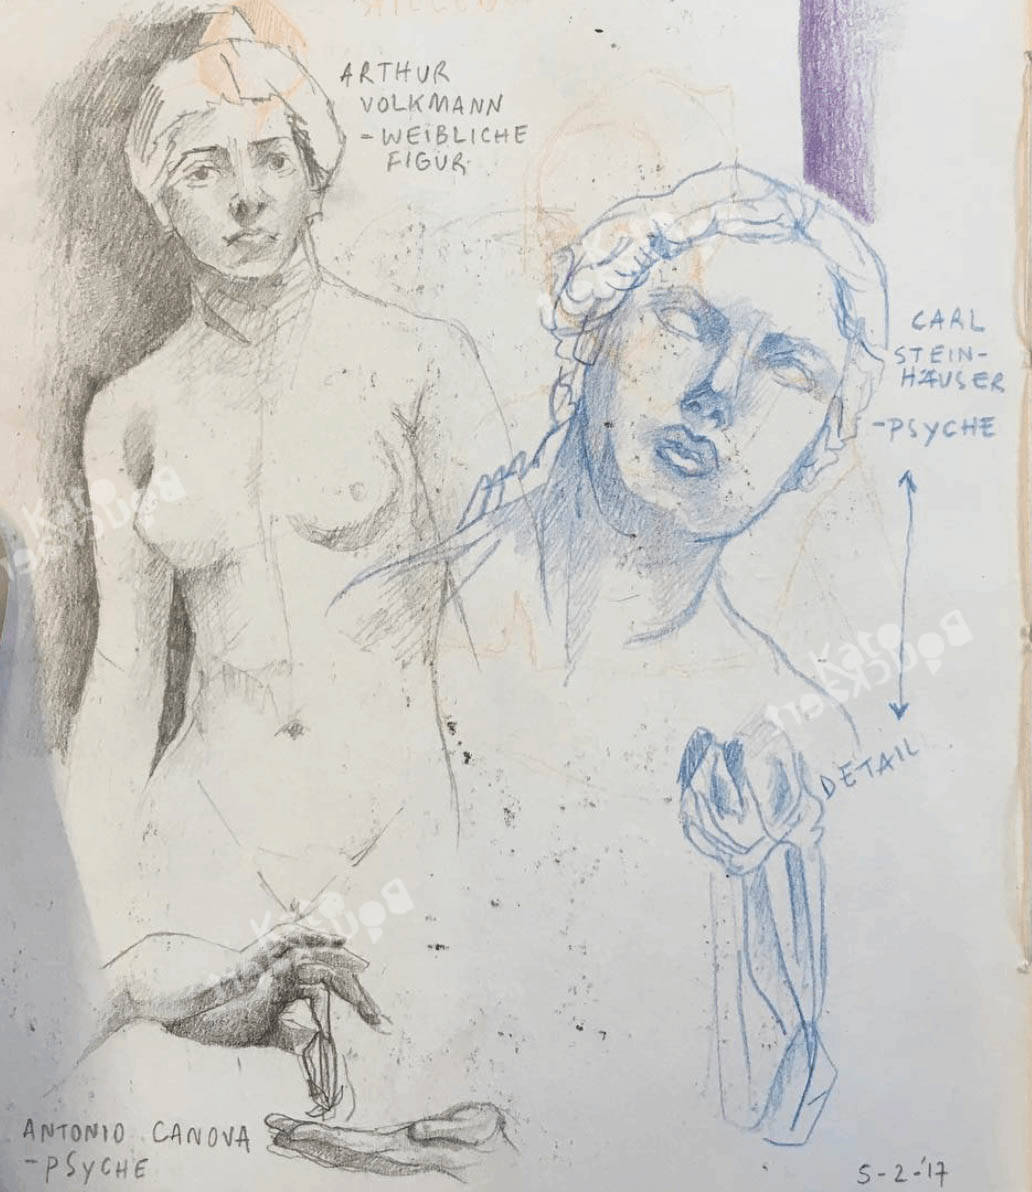 ARTHUR
VOLKMANN
-WEIBLICHE
FIGUR
CARL
STEIN-
HÄUSER
-PSYCHE
DETAIL
ANTONIO CANOVA
-PSYCHE
5-2-'17